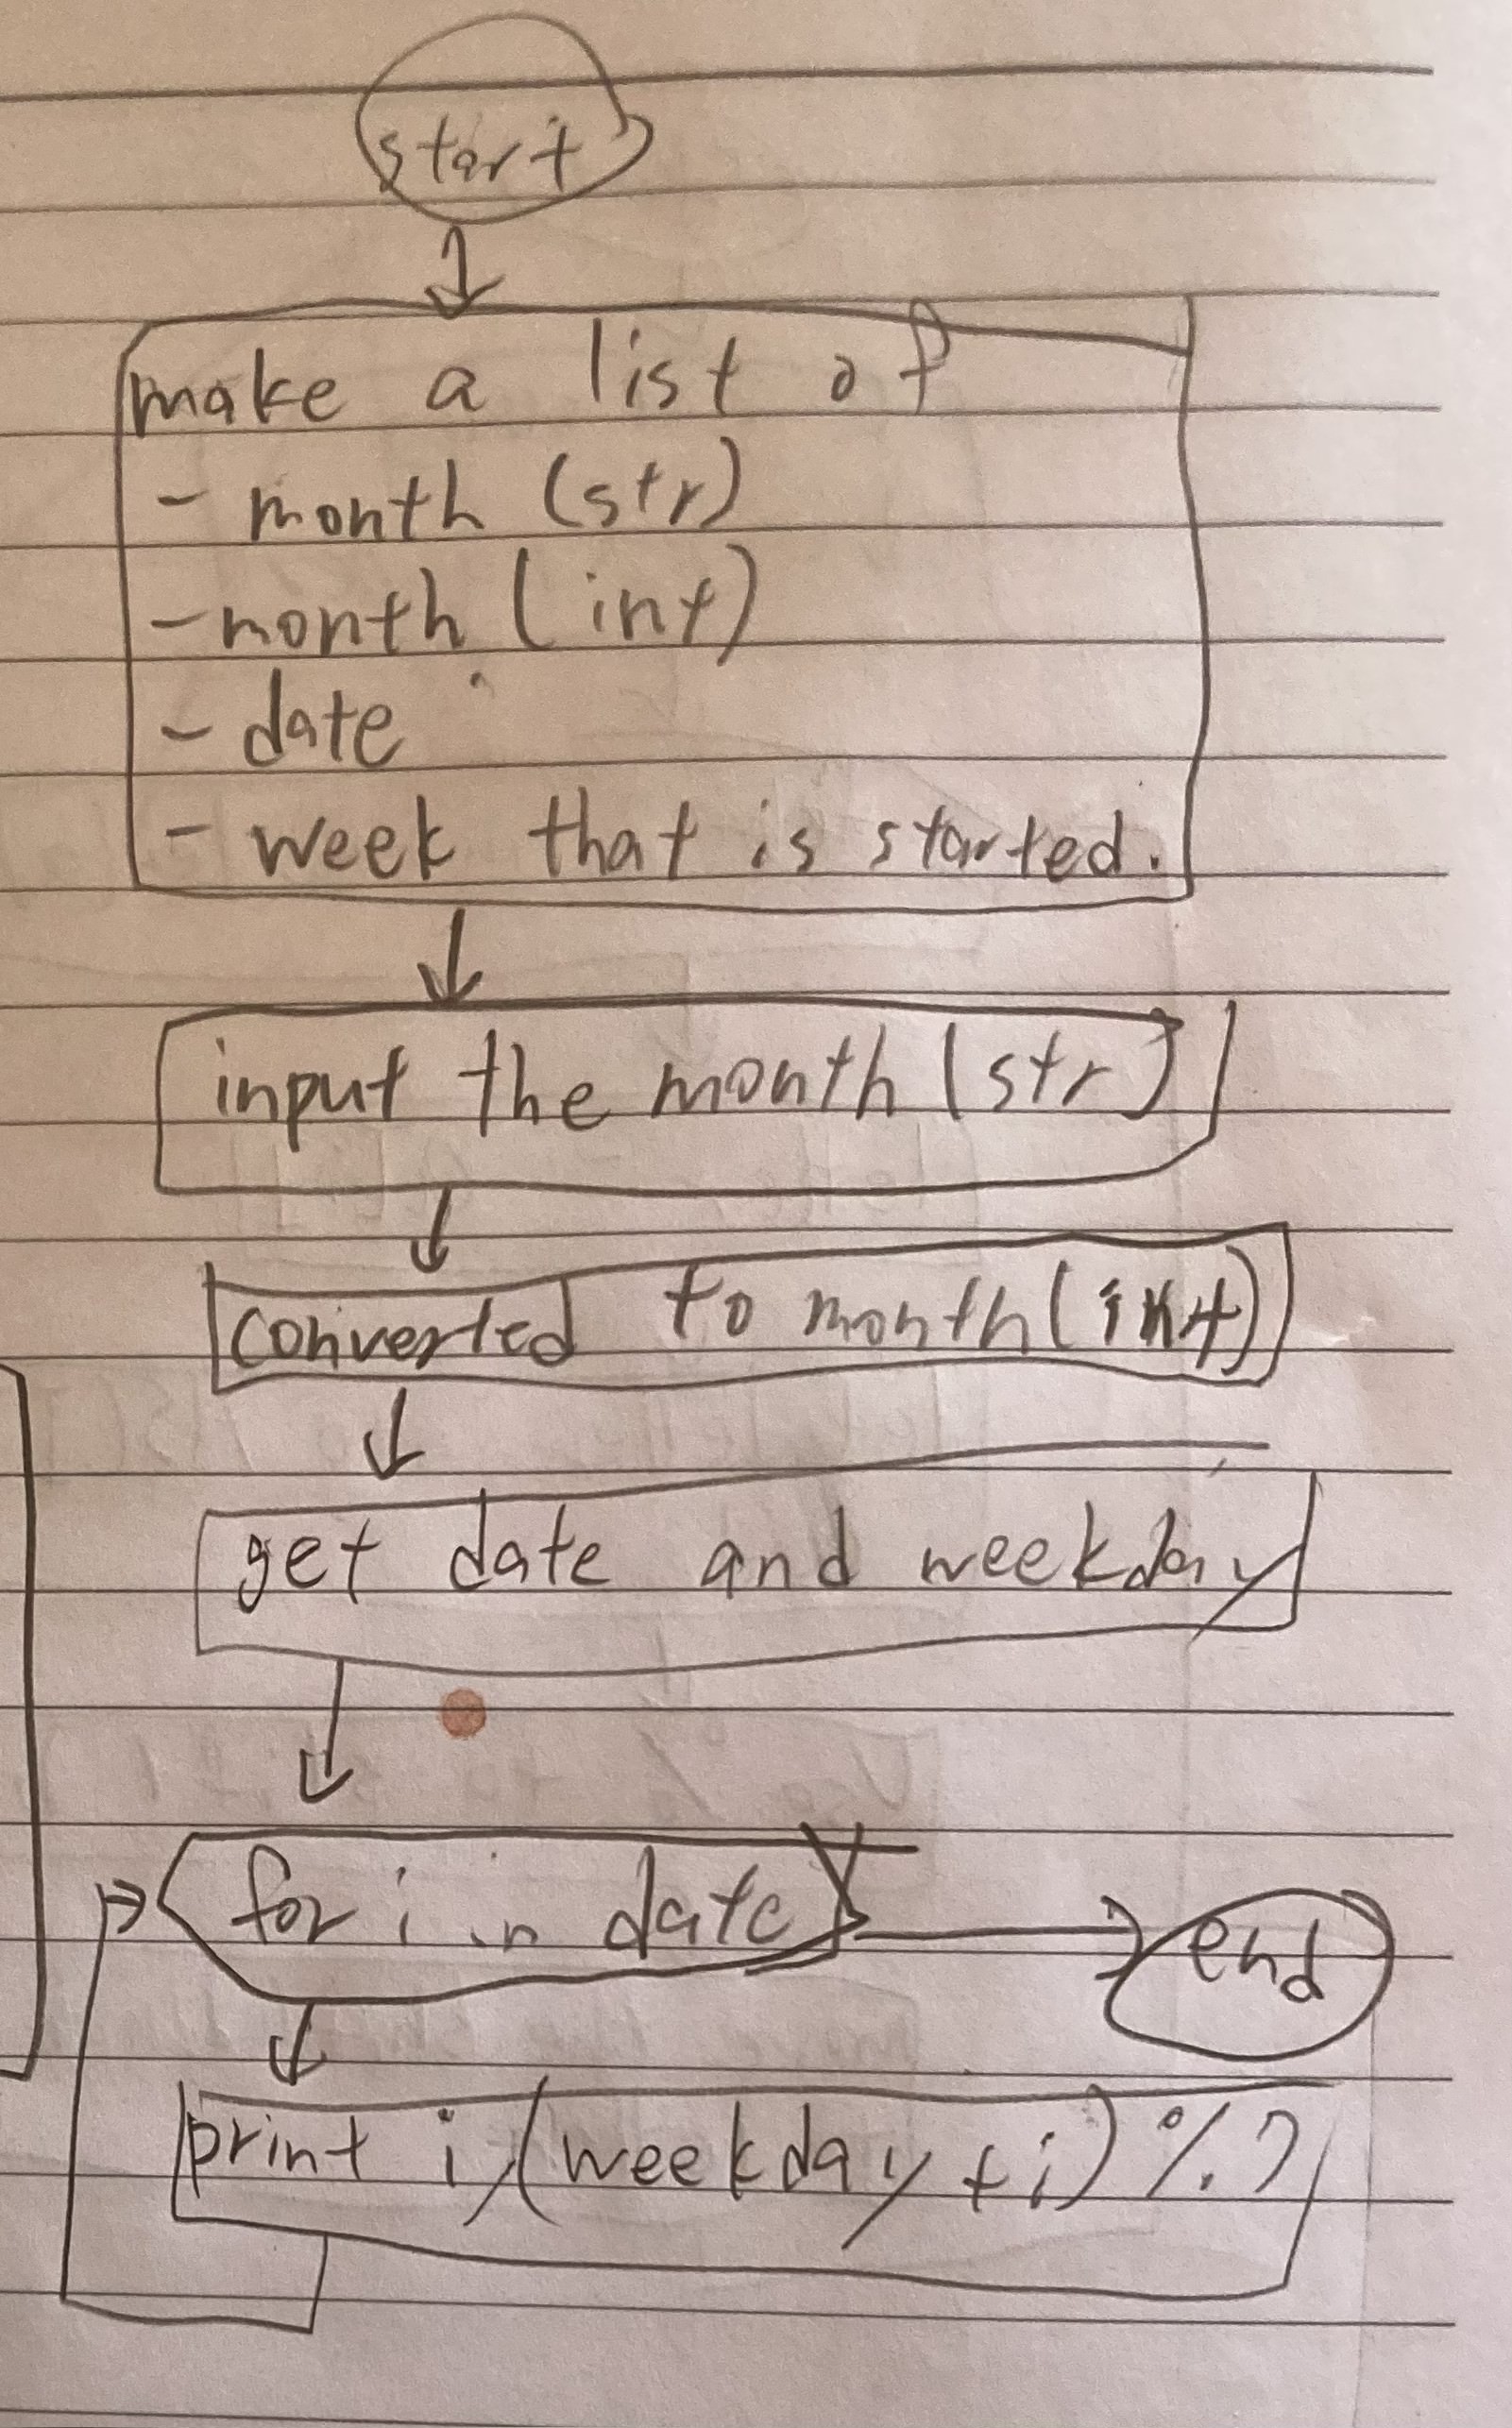 start
make a list of
- month (str)
- month (int)
- date
- week that is started.
input the month (str)
converted to month (int)
get date and weekday
for i in date
end
print i, (weekday + i) % 7